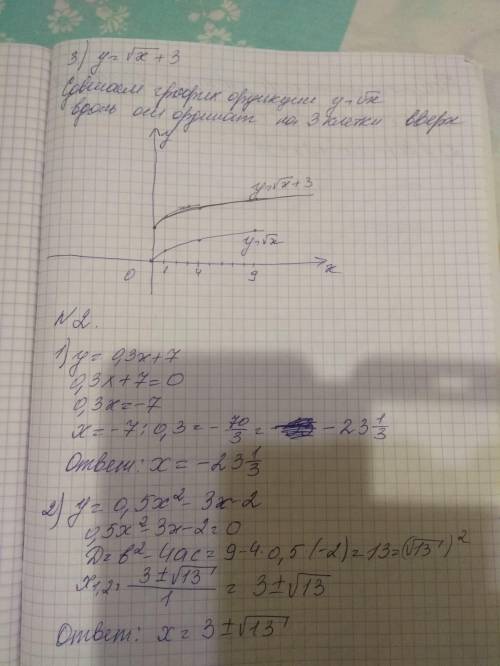 3) y=√x+3
Сдвигаем график функции y=√x
вдоль оси ординат на 3 клетки вверх
y
y=√x+3
y=√x
0 1 4 9 x
N2.
1) y = 0,3x+7
0,3x+7=0
0,3x=-7
x=-7:0,3=-70/3= -23 1/3
Ответ: x=-23 1/3
2) y=0,5x²-3x-2
0,5x²-3x-2=0
D=b²-4ac=9-4·0,5·(-2)=13=(√13)²
x1,2=3±√13/1=3±√13
Ответ: x=3±√13